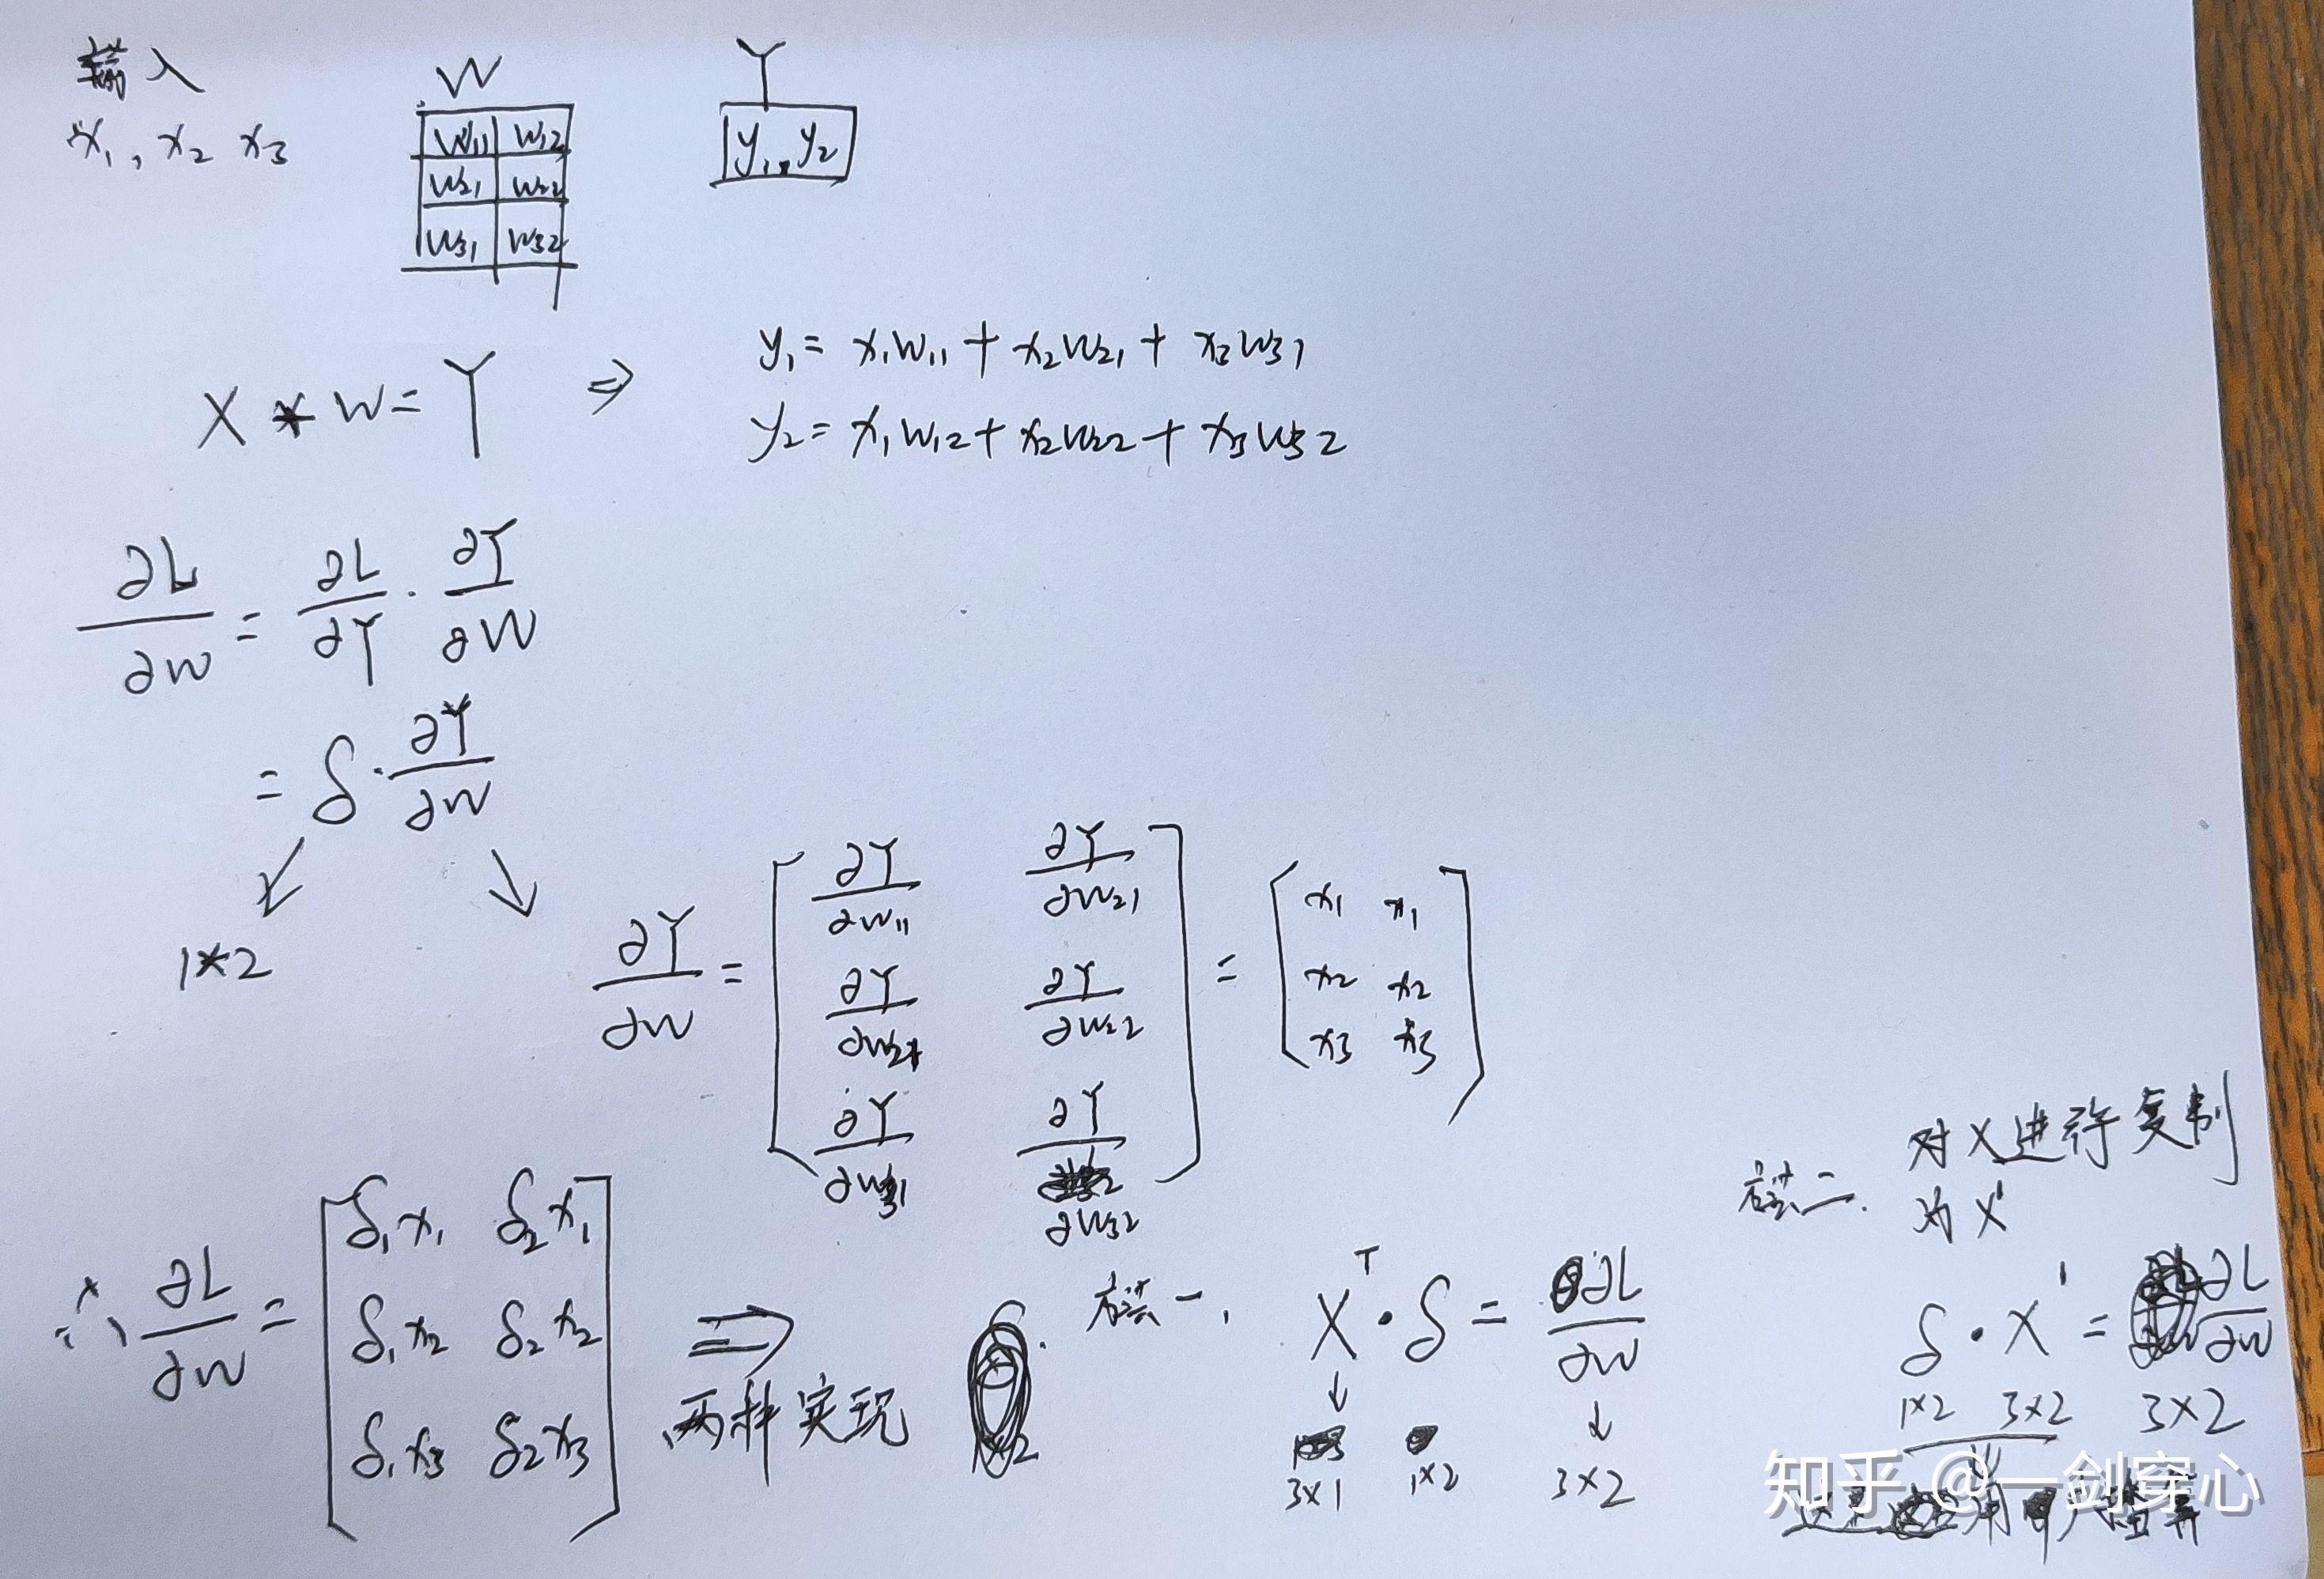 输入
x₁, x₂ x₃
W
w₁₁ w₁₂
w₂₁ w₂₂
w₃₁ w₃₂
Y
y₁, y₂
X * W = Y ⇒
y₁ = x₁w₁₁ + x₂w₂₁ + x₃w₃₁
y₂ = x₁w₁₂ + x₂w₂₂ + x₃w₃₂
∂L/∂W = ∂L/∂Y · ∂Y/∂W
= δ · ∂Y/∂W
1*2
∂Y/∂W = [ ∂Y/∂w₁₁ ∂Y/∂w₂₁ ] = [ x₁ x₁ ]
[ ∂Y/∂w₂₁ ∂Y/∂w₂₂ ] [ x₂ x₂ ]
[ ∂Y/∂w₃₁ ∂Y/∂w₃₂ ] [ x₃ x₃ ]
∴ ∂L/∂W = [ δ₁x₁ δ₂x₁ ]
[ δ₁x₂ δ₂x₂ ]
[ δ₁x₃ δ₂x₃ ]
⇒
两种实现
方法一, Xᵀ · δ = ∂L/∂W
↓ ↓
3×1 1×2 3×2
方法二. 对X进行复制
为X'
δ · X' = ∂L/∂W
1×2 3×2 3×2
知乎 @一剑穿心